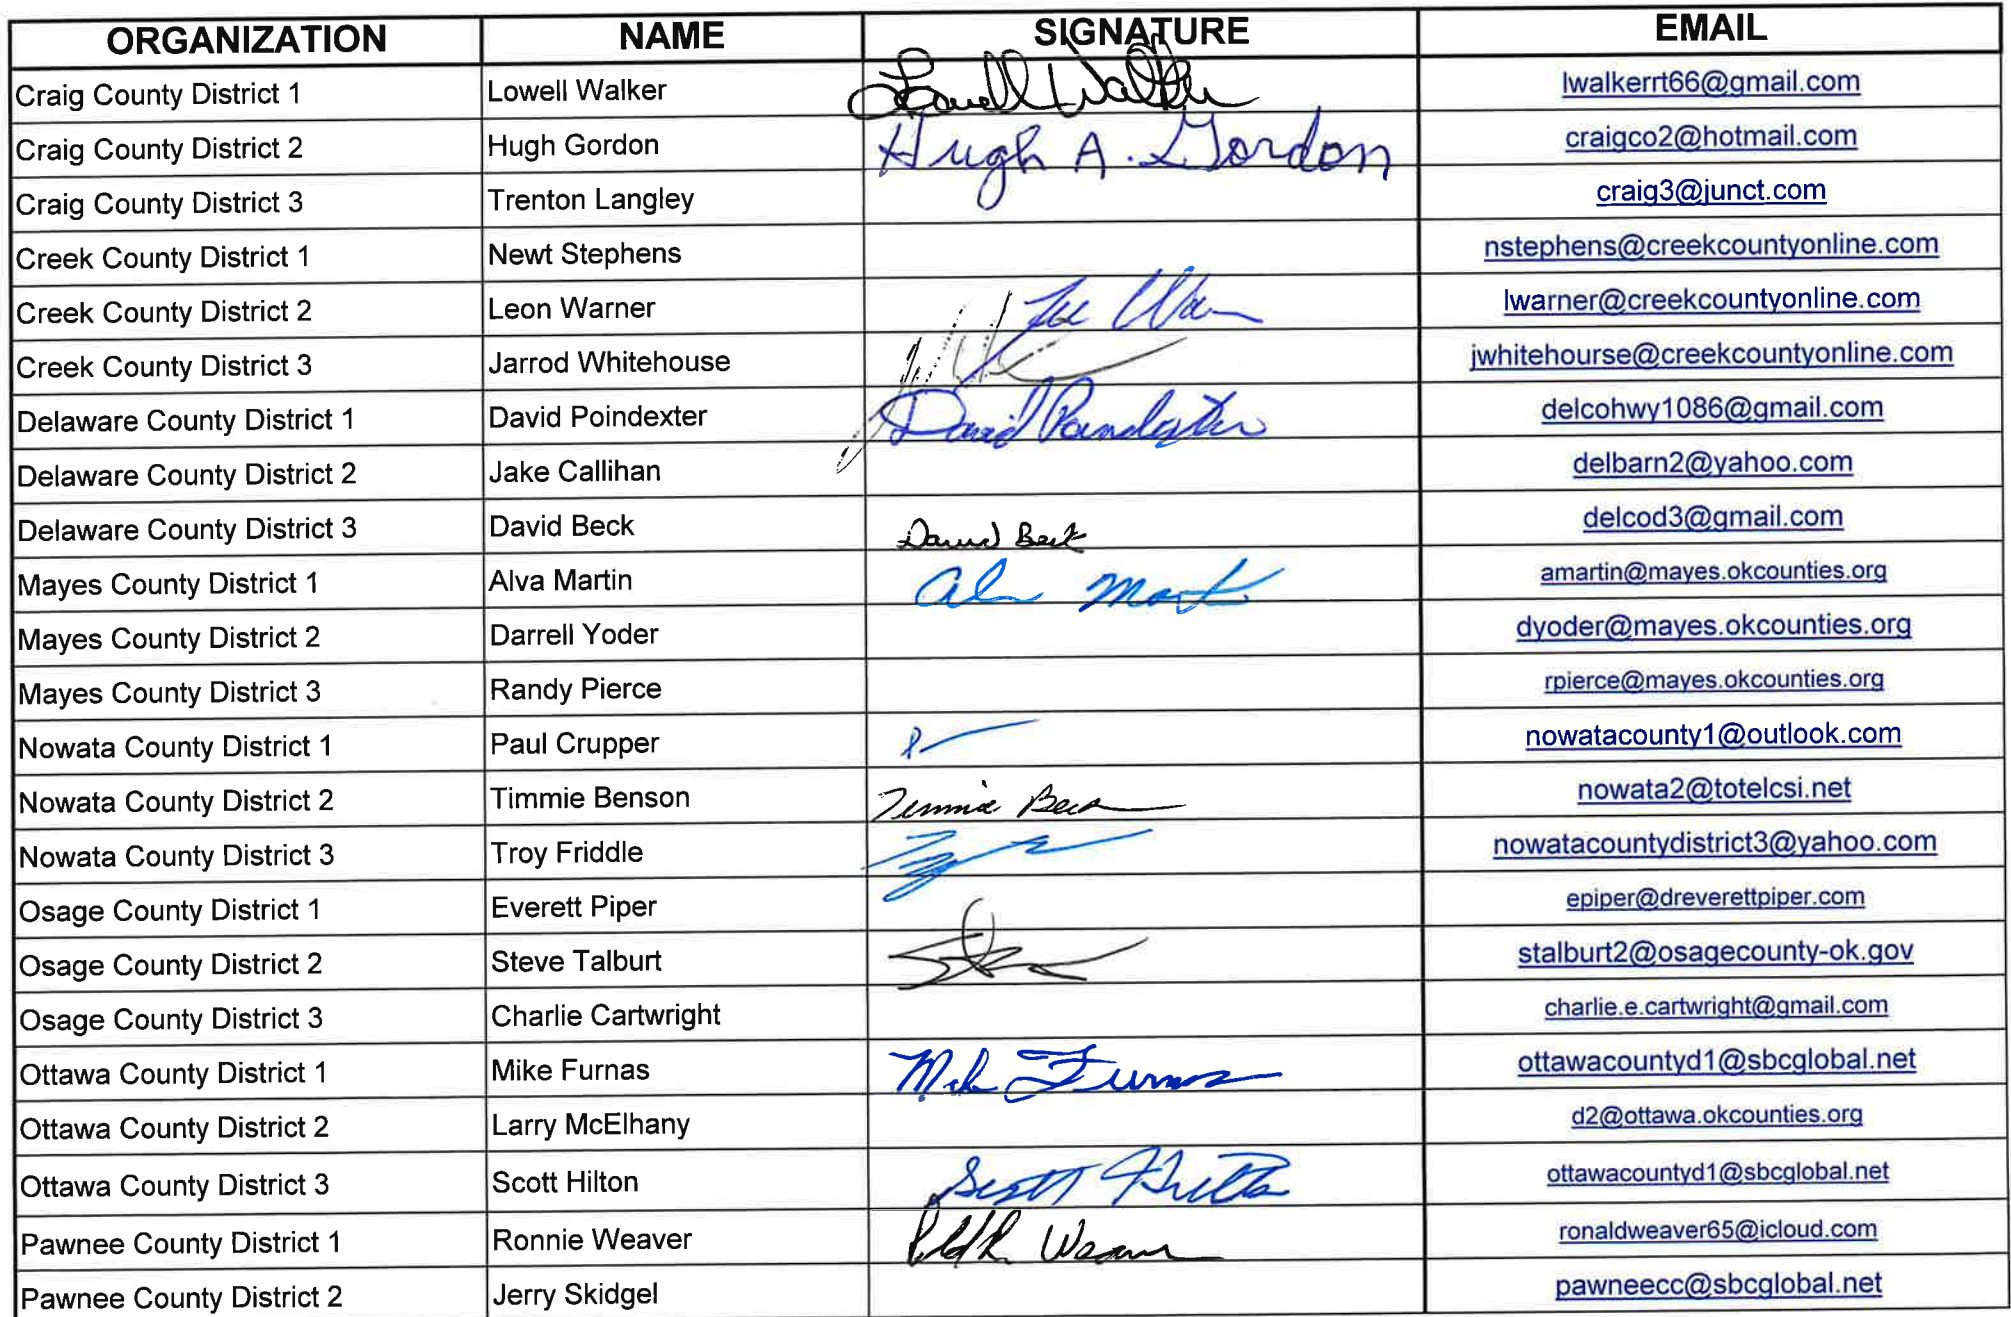 ORGANIZATION NAME SIGNATURE EMAIL
Craig County District 1 Lowell Walker Lowell Walker lwalkerrt66@gmail.com
Craig County District 2 Hugh Gordon Hugh A. Gordon craigco2@hotmail.com
Craig County District 3 Trenton Langley craig3@junct.com
Creek County District 1 Newt Stephens nstephens@creekcountyonline.com
Creek County District 2 Leon Warner lwarner@creekcountyonline.com
Creek County District 3 Jarrod Whitehouse jwhitehourse@creekcountyonline.com
Delaware County District 1 David Poindexter David Poindexter delcohwy1086@gmail.com
Delaware County District 2 Jake Callihan delbarn2@yahoo.com
Delaware County District 3 David Beck David Beck delcod3@gmail.com
Mayes County District 1 Alva Martin amartin@mayes.okcounties.org
Mayes County District 2 Darrell Yoder dyoder@mayes.okcounties.org
Mayes County District 3 Randy Pierce rpierce@mayes.okcounties.org
Nowata County District 1 Paul Crupper nowatacounty1@outlook.com
Nowata County District 2 Timmie Benson Timmie nowata2@totelcsi.net
Nowata County District 3 Troy Friddle nowatacountydistrict3@yahoo.com
Osage County District 1 Everett Piper epiper@dreverettpiper.com
Osage County District 2 Steve Talburt stalburt2@osagecounty-ok.gov
Osage County District 3 Charlie Cartwright charlie.e.cartwright@gmail.com
Ottawa County District 1 Mike Furnas Mike Furnas ottawacountyd1@sbcglobal.net
Ottawa County District 2 Larry McElhany d2@ottawa.okcounties.org
Ottawa County District 3 Scott Hilton Scott Hilton ottawacountyd1@sbcglobal.net
Pawnee County District 1 Ronnie Weaver Weaver ronaldweaver65@icloud.com
Pawnee County District 2 Jerry Skidgel pawneecc@sbcglobal.net